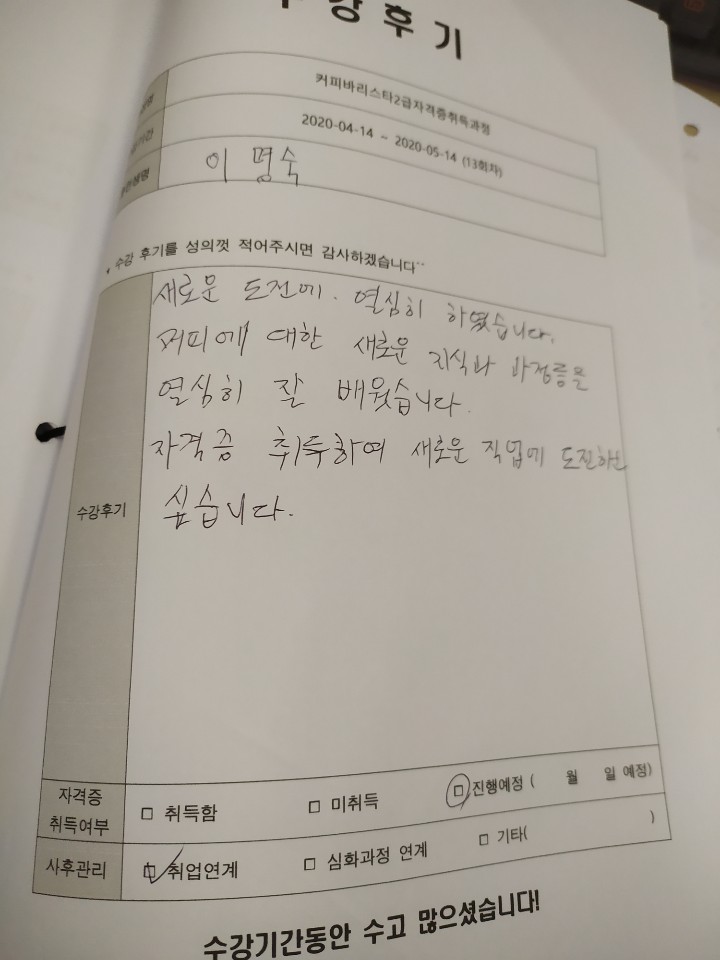 수강후기
커피바리스타2급자격증취득과정
기간 2020-04-14 ~ 2020-05-14 (13회차)
이명숙
* 수강 후기를 성의껏 적어주시면 감사하겠습니다^^
수강후기
새로운 도전에. 열심히 하였습니다.
커피에 대한 새로운 지식과 과정등을
열심히 잘 배웠습니다.
자격증 취득하여 새로운 직업에 도전하고
싶습니다.
자격증 취득여부 □ 취득함 □ 미취득 □ 진행예정 ( 월 일 예정)
사후관리 □ 취업연계 □ 심화과정 연계 □ 기타( )
수강기간동안 수고 많으셨습니다!